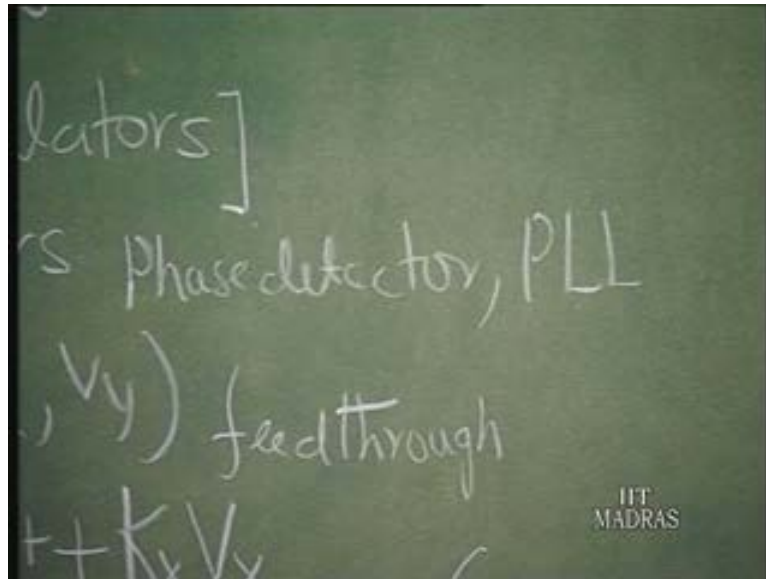 lators]
rs Phase detector, PLL
, Vy) feedthrough
+ Kx Vx
IIT
MADRAS